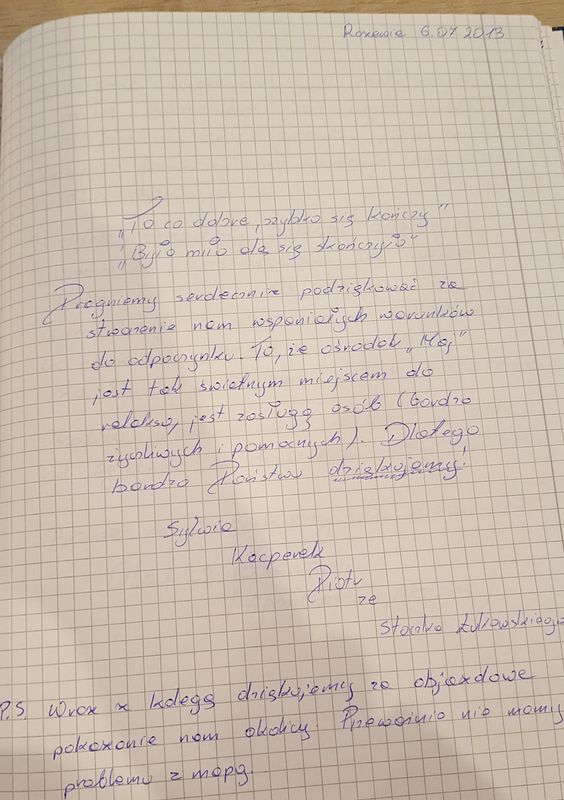 Rozewie 6.07 2013
"To co dobre, szybko się kończy"
"Było miło ale się skończyło"
Pragniemy serdecznie podziękować za
stworzenie nam wspaniałych warunków
do odpoczynku. To, że ośrodek "Maj"
jest tak świetnym miejscem do
relaksu, jest zasługą osób (bardzo
życzliwych i pomocnych). Dlatego
bardzo Państwu dziękujemy!
Sylwia
Kacperek
Piotr
ze
Stocka Łukowskiego
P.S. Wraz z kolegą dziękujemy za objazdowe
pokazanie nam okolicy. Przeważnie nie mamy
problemu z mapą.